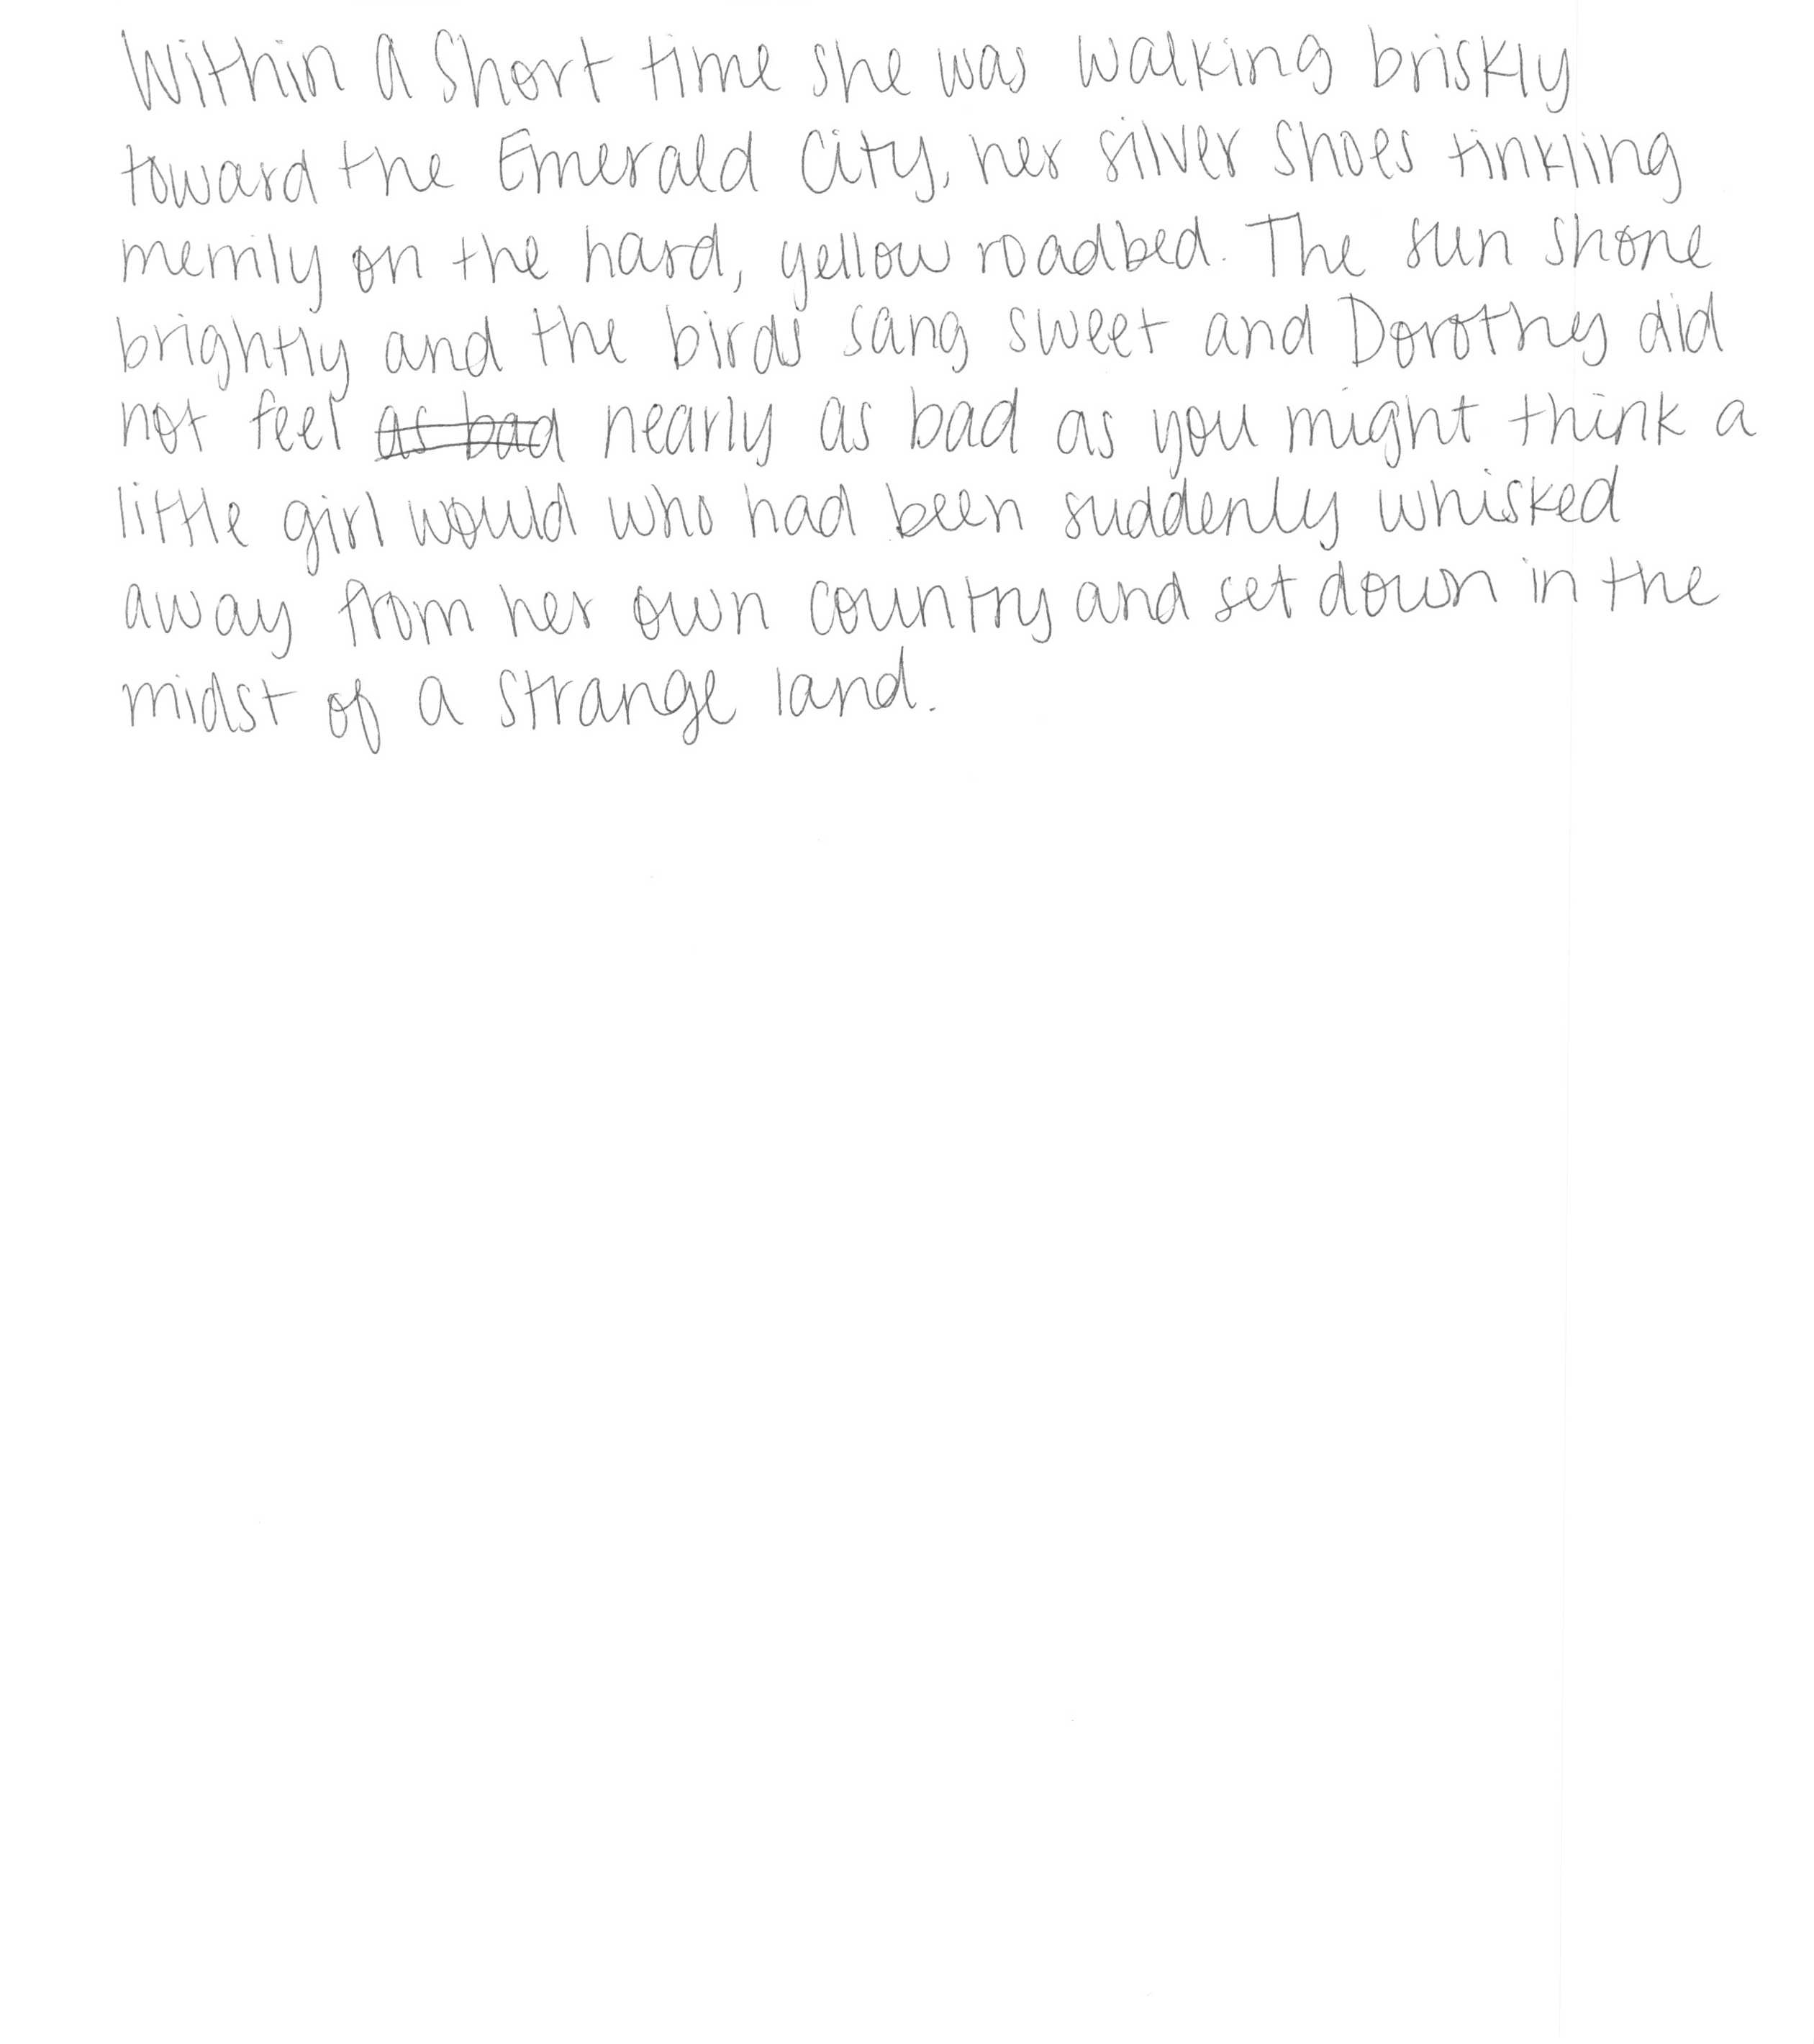 Within a short time she was walking briskly
toward the Emerald City, her silver shoes tinkling
merrily on the hard, yellow roadbed. The sun shone
brightly and the birds sang sweet and Dorothy did
not feel as bad nearly as bad as you might think a
little girl would who had been suddenly whisked
away from her own country and set down in the
midst of a strange land.